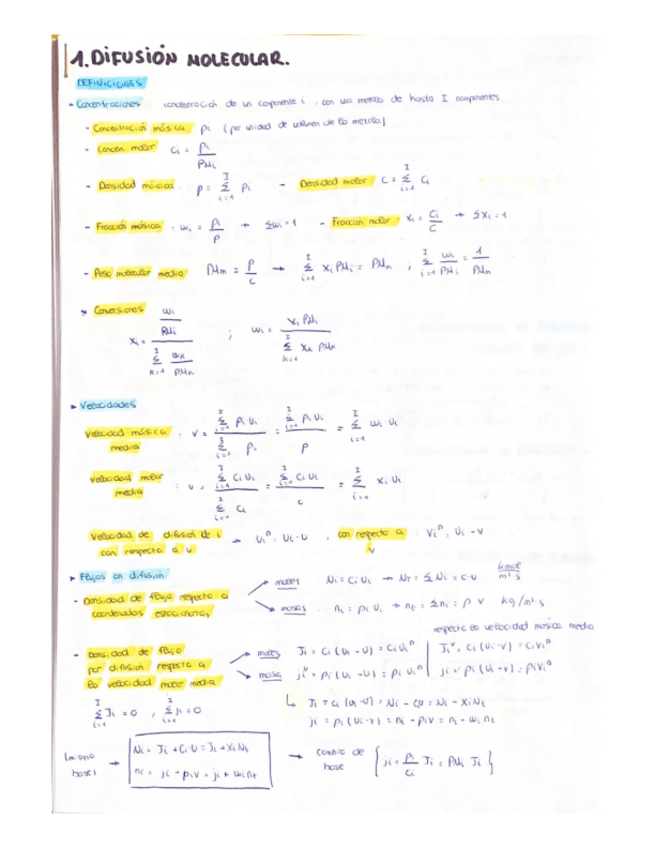 1. DIFUSIÓN MOLECULAR.
DEFINICIONES
- Concentraciones: concentración de un componente i, con una mezcla de hasta I componentes
- Concentración másica ρi (por unidad de volumen de la mezcla)
- Concen. molar Ci = ρi / PMi
- Densidad másica ρ = Σ(i=1, I) ρi - Densidad molar C = Σ(i=1, I) Ci
- Fracción másica : wi = ρi / ρ → Σwi = 1 - Fracción molar : xi = Ci / C → Σxi = 1
- Peso molecular medio PMm = ρ / c → Σ(i=1, I) xi PMi = PMm ; Σ(i=1, I) wi / PMi = 1 / PMm
➤ Conversiones xi = (wi / PMi) / (Σ(k=1, I) wk / PMk) ; wi = xi PMi / (Σ(k=1, I) xk PMk)
➤ Velocidades
Velocidad másica media : v = Σ(i=1, I) ρi vi / Σ(i=1, I) ρi = Σ(i=1, I) ρi vi / ρ = Σ(i=1, I) wi vi
Velocidad molar media : v = Σ(i=1, I) Ci Ui / Σ(i=1, I) Ci = Σ(i=1, I) Ci Ui / c = Σ(i=1, I) xi Ui
Velocidad de difusión de i con respecto a U → Ui^D = Ui - U , con respecto a v : Vi^D = Ui - V
➤ Flujos en difusión
- Densidad de flujo respecto a coordenadas estacionarias
→ moles : Ni = Ci Ui → NT = ΣNi = C·U kmol / m² s
→ masas : ni = ρi Ui → nt = Σni = ρ V kg/m² s
respecto la velocidad másica media
- Densidad de flujo por difusión respecto a la velocidad molar media
→ moles Ji = Ci (Ui - U) = Ci Ui^D | Ji^v = Ci (Ui - v) = Ci Vi^D
→ masa ji^u = ρi (Ui - U) = ρi Ui^D | ji = ρi (Ui - v) = ρi Vi^D
Σ(i=1, I) Ji = 0 , Σ(i=1, I) ji = 0
↳ Ji = Ci (Ui - U) = Ni - CiU = Ni - xi Nt
ji = ρi (Ui - v) = ni - ρi v = ni - wi nt
(misma base) → Ni = Ji + Ci U = Ji + xi Nt
ni = ji + ρi v = ji + wi nt
→ cambio de base { ji = ρi / Ci Ji = PMi Ji }